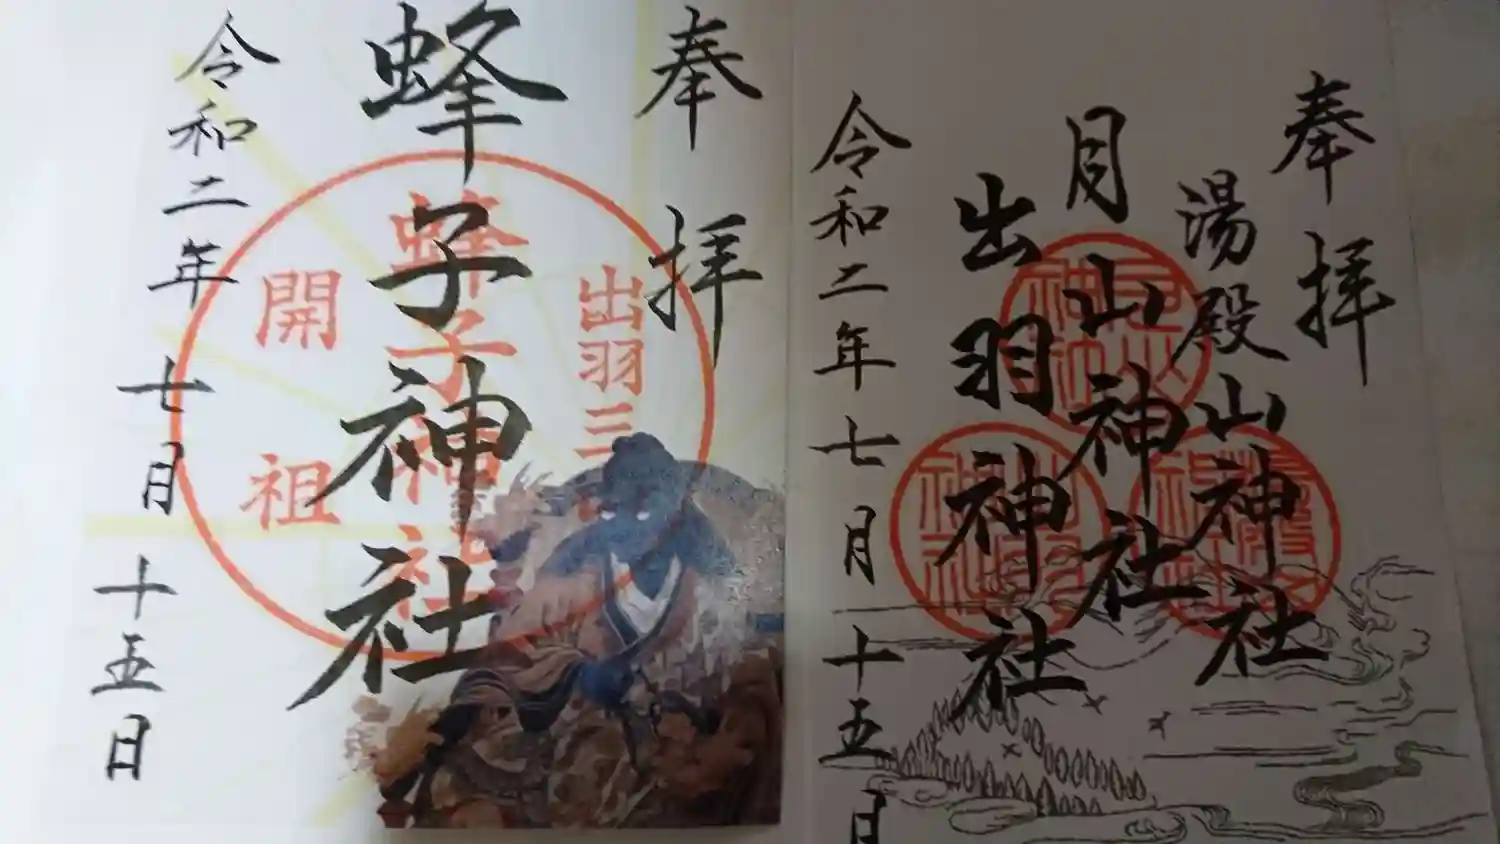 奉拝
湯殿山神社
月山神社
出羽神社
令和二年七月十五日
奉拝
蜂子神社
令和二年七月十五日
出羽三
蜂子神社
開祖